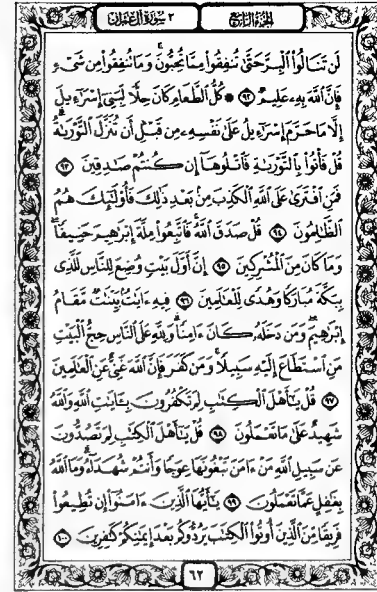 الجزء الرابع
٣ سورة آل عمران
لَن تَنَالُوا۟ ٱلْبِرَّ حَتَّىٰ تُنفِقُوا۟ مِمَّا تُحِبُّونَ ۚ وَمَا تُنفِقُوا۟ مِن شَىْءٍ
فَإِنَّ ٱللَّهَ بِهِۦ عَلِيمٌ ٩٢ ۞ كُلُّ ٱلطَّعَامِ كَانَ حِلًّا لِّبَنِىٓ إِسْرَٰٓءِيلَ
إِلَّا مَا حَرَّمَ إِسْرَٰٓءِيلُ عَلَىٰ نَفْسِهِۦ مِن قَبْلِ أَن تُنَزَّلَ ٱلتَّوْرَىٰةُ ۗ
قُلْ فَأْتُوا۟ بِٱلتَّوْرَىٰةِ فَٱتْلُوهَآ إِن كُنتُمْ صَٰدِقِينَ ٩٣
فَمَنِ ٱفْتَرَىٰ عَلَى ٱللَّهِ ٱلْكَذِبَ مِنۢ بَعْدِ ذَٰلِكَ فَأُو۟لَٰٓئِكَ هُمُ
ٱلظَّٰلِمُونَ ٩٤ قُلْ صَدَقَ ٱللَّهُ ۗ فَٱتَّبِعُوا۟ مِلَّةَ إِبْرَٰهِيمَ حَنِيفًا
وَمَا كَانَ مِنَ ٱلْمُشْرِكِينَ ٩٥ إِنَّ أَوَّلَ بَيْتٍ وُضِعَ لِلنَّاسِ لَلَّذِى
بِبَكَّةَ مُبَارَكًا وَهُدًى لِّلْعَٰلَمِينَ ٩٦ فِيهِ ءَايَٰتٌۢ بَيِّنَٰتٌ مَّقَامُ
إِبْرَٰهِيمَ ۖ وَمَن دَخَلَهُۥ كَانَ ءَامِنًا ۗ وَلِلَّهِ عَلَى ٱلنَّاسِ حِجُّ ٱلْبَيْتِ
مَنِ ٱسْتَطَاعَ إِلَيْهِ سَبِيلًا ۚ وَمَن كَفَرَ فَإِنَّ ٱللَّهَ غَنِىٌّ عَنِ ٱلْعَٰلَمِينَ
٩٧ قُلْ يَٰٓأَهْلَ ٱلْكِتَٰبِ لِمَ تَكْفُرُونَ بِـَٔايَٰتِ ٱللَّهِ وَٱللَّهُ
شَهِيدٌ عَلَىٰ مَا تَعْمَلُونَ ٩٨ قُلْ يَٰٓأَهْلَ ٱلْكِتَٰبِ لِمَ تَصُدُّونَ
عَن سَبِيلِ ٱللَّهِ مَنْ ءَامَنَ تَبْغُونَهَا عِوَجًا وَأَنتُمْ شُهَدَآءُ ۗ وَمَا ٱللَّهُ
بِغَٰفِلٍ عَمَّا تَعْمَلُونَ ٩٩ يَٰٓأَيُّهَا ٱلَّذِينَ ءَامَنُوٓا۟ إِن تُطِيعُوا۟
فَرِيقًا مِّنَ ٱلَّذِينَ أُوتُوا۟ ٱلْكِتَٰبَ يَرُدُّوكُم بَعْدَ إِيمَٰنِكُمْ كَٰفِرِينَ ١٠٠
٦٢